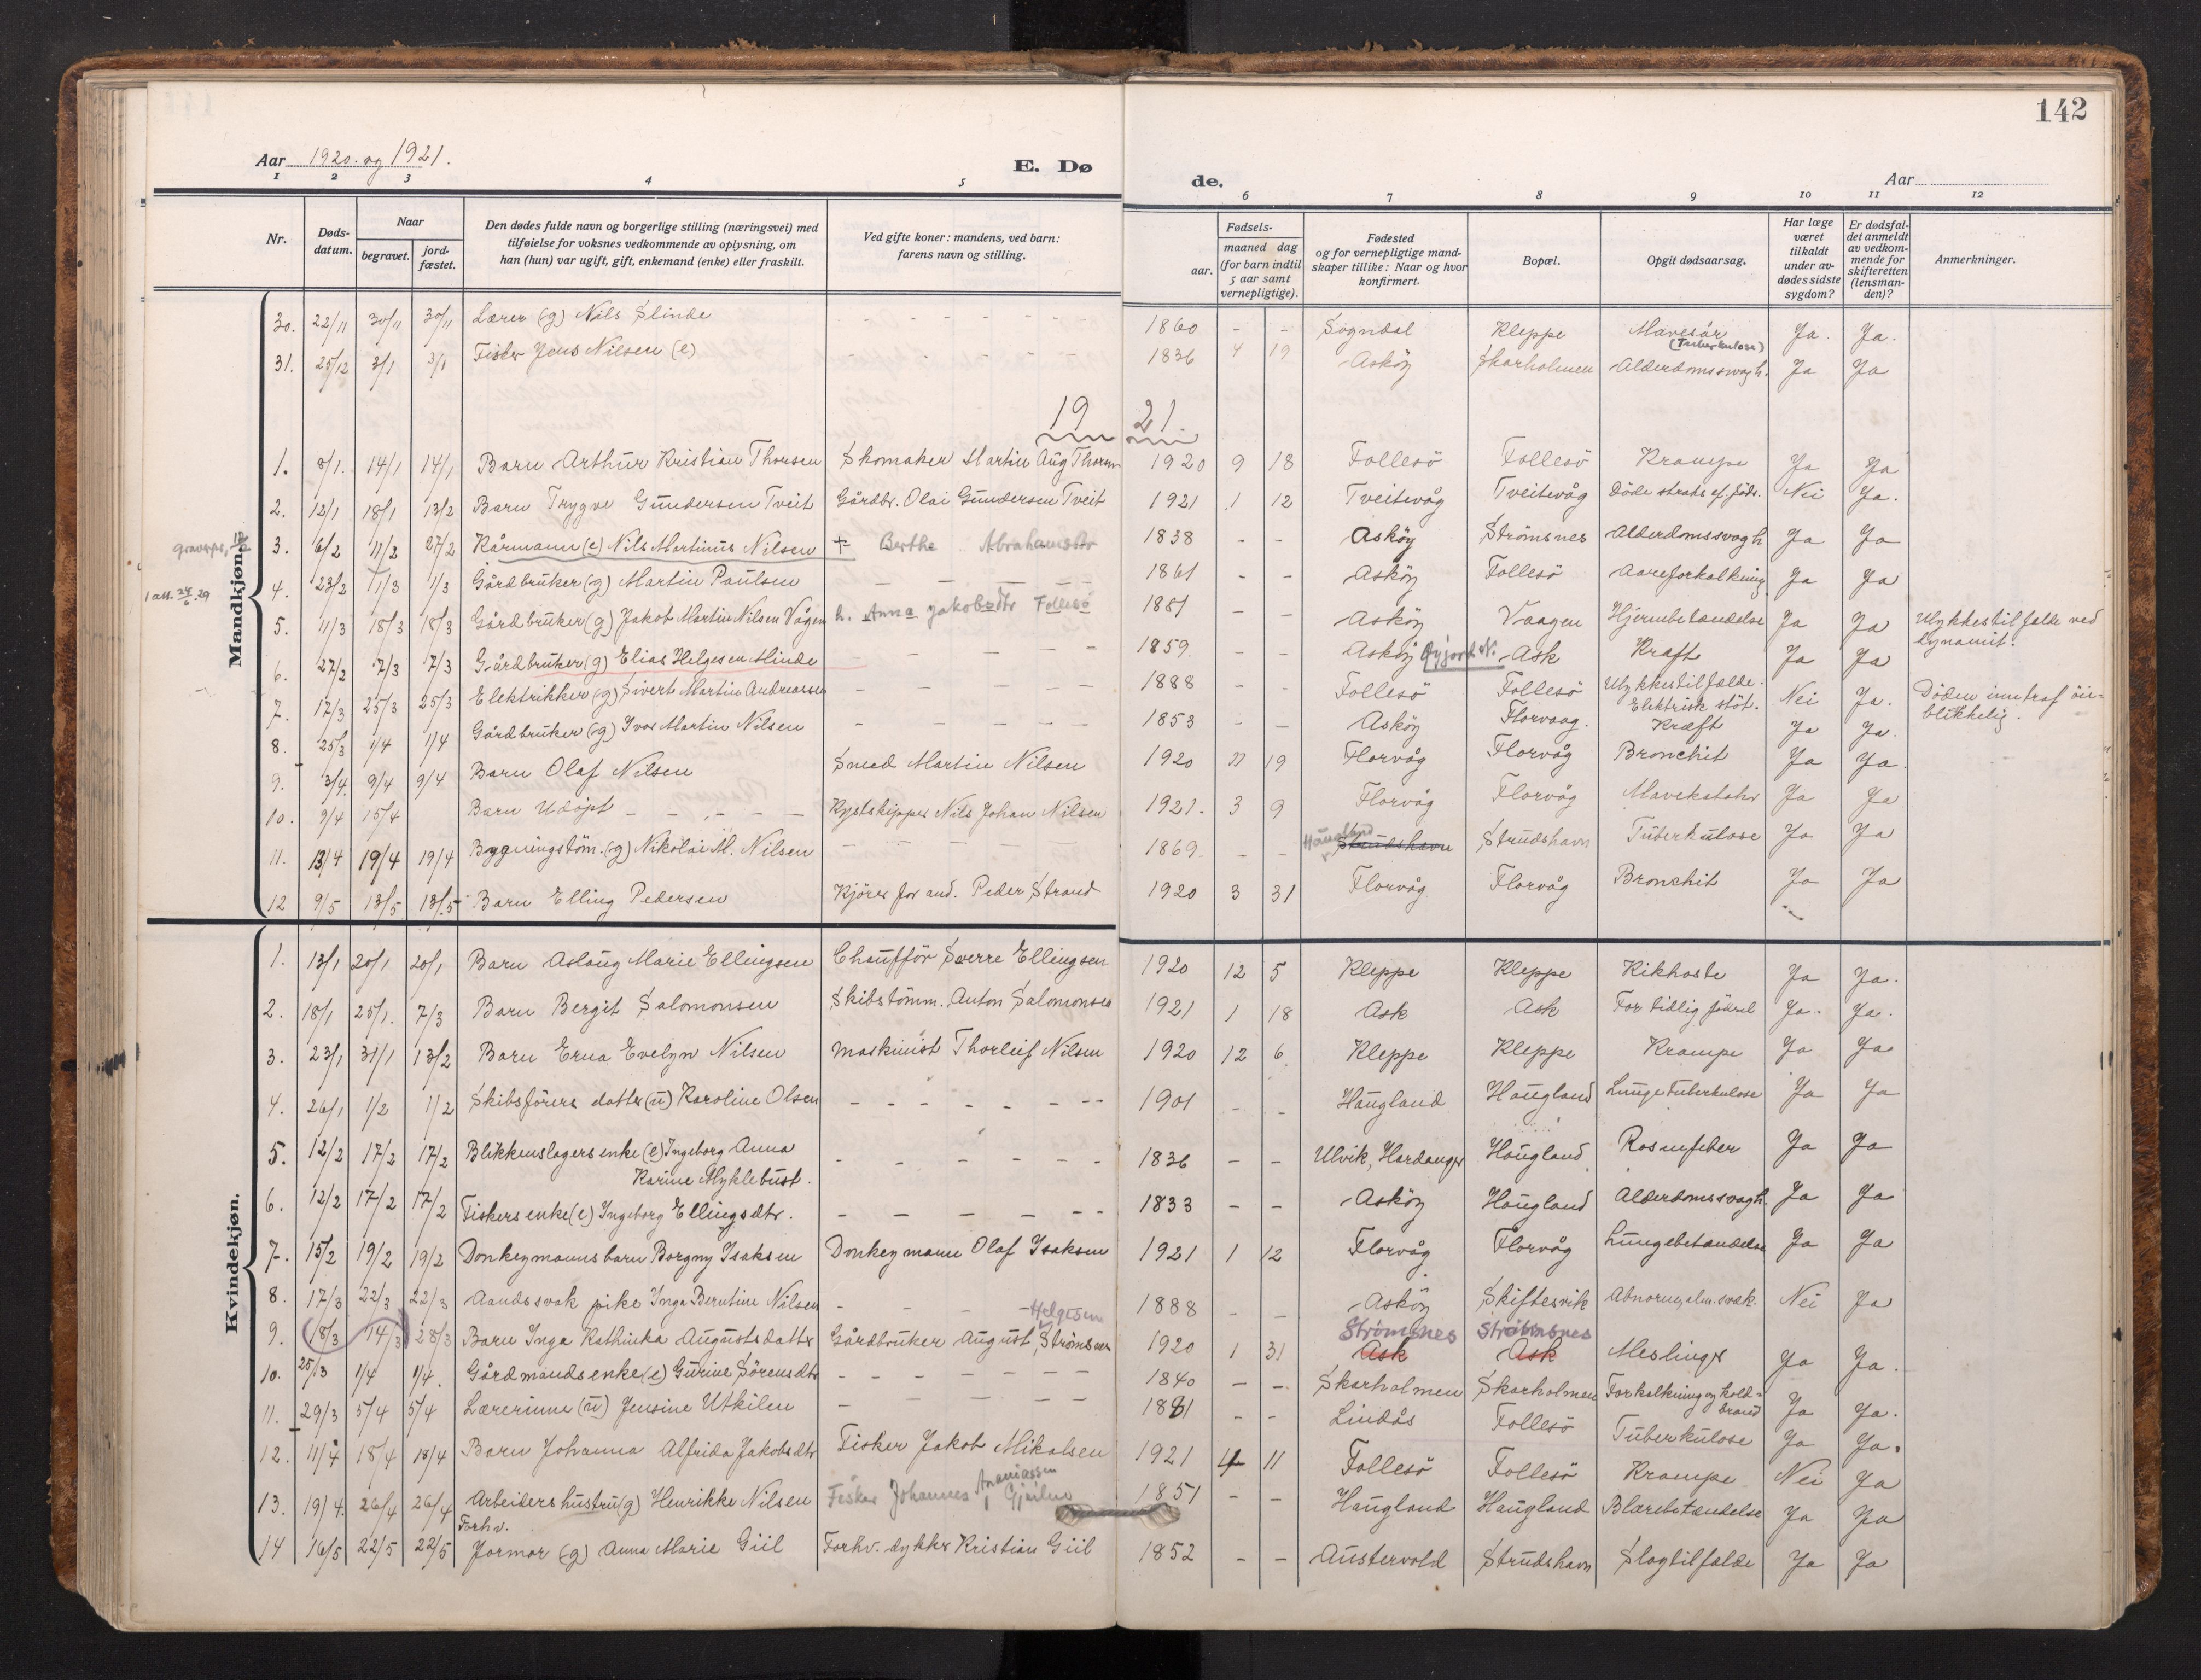 142
Aar 1920. og 1921.
E. Dø
de.
Aar
1 2 3 4 5 6 7 8 9 10 11 12
Nr.
Døds-datum.
Naar
begravet.
jord-fæstet.
Den dødes fulde navn og borgerlige stilling (næringsvei) med tilføielse for voksnes vedkommende av oplysning, om han (hun) var ugift, gift, enkemand (enke) eller fraskilt.
Ved gifte koner: mandens, ved barn: farens navn og stilling.
Fødsels-
aar.
maaned dag
(for barn indtil 5 aar samt vernepligtige).
Fødested og for vernepligtige mandskaper tillike: Naar og hvor konfirmert.
Bopæl.
Opgit dødsaarsag.
Har læge været tilkaldt under avdødes sidste sygdom?
Er dødsfaldet anmeldt av vedkommende for skifteretten (lensmanden)?
Anmerkninger.
Mandkjøn.
30. 22/11 30/11 30/11 Lærer (g) Nils Slinde - - - - - - - 1860 - - Sogndal Kleppe Mavesår (Tuberkulose) Ja. Ja.
31. 25/12 3/1 3/1 Fisker Jens Nilsen (e) - - - - - - 1836 4 19 Askøy Skarholmen Alderdomssvagh. Ja Ja
1921.
1. 8/1. 14/1 14/1 Barn Arthur Kristian Thorsen Skomaker Martin Aug Thorsen 1920 9 18 Follesö Follesö Krampe Ja Ja
2. 12/1 18/1 13/2 Barn Trygve Gundersen Tveit Gårdbr. Olai Gundersen Tveit 1921 1 12 Tveitevåg Tveitevåg Döde straks ef. föds. Nei Ja.
3. 6/2 11/2 27/2 Kårmann (e) Nils Martinus Nilsen + Berthe Abrahamsdtr 1838 - - Askøy Strömsnes Alderdomssvagh Ja Ja
1 att. 24/6.29
4. 23/2 1/3 1/3 Gårdbruker (g) Martin Paulsen - - - - - 1861 - - Askøy Follesö Aareforkalkning Ja Ja
5. 11/3 18/3 18/3 Gårdbruker (g) Jakob Martin Nilsen Vågen h. Anna Jakobsdtr Follesø 1881 - - Askøy Vaagen Hjernebetændelse Ja Ja Ulykkestilfælde ved dynamit.
6. 27/2 7/3 7/3 Gårdbruker (g) Elias Helgesen Minde - - - - - 1859. Askøy Ask Kræft Ja Ja
7. 17/3 25/3 25/3 Elektrikker (g) Sivert Martin Andreassen - - - - - 1888 - - Follesö Follesö Ulykkestilfælde. Elektrisk stöt. Nei Ja. Döden inntraf öieblikkelig.
8. 25/3 1/4 1/4 Gårdbruker (g) Ivar Martin Nilsen - - - - - 1853 - - Askøy Florvaag. Kræft Ja Ja.
9. 3/4. 9/4 9/4 Barn Olaf Nilsen Smed Martin Nilsen 1920 11 19 Florvåg Florvåg Bronchit Ja Ja.
10. 9/4 15/4 Barn Udöpt - - - - - Kystskipper Nils Johan Nilsen 1921. 3 9 Florvåg Florvåg Mavekatahr Ja Ja
11. 13/4 19/4 19/4 Bygningstöm. (g) Nikolai M. Nilsen - - - - - 1869. - - Haugland Strudshavn Strudshavn Tuberkulose Ja Ja
12 9/5 13/5 13/5 Barn Elling Pedersen Kjörer for and. Peder Strand 1920 3 31 Florvåg Florvåg Bronchit Ja Ja
Kvindekjøn.
1. 13/1 20/1 20/1 Barn Aslaug Marie Ellingsen Chaufför Sverre Ellingsen 1920 12 5 Kleppe Kleppe Kikhoste Ja Ja.
2. 18/1 25/1. 7/3 Barn Bergit Salomonsen Skibstömm. Anton Salomonsen 1921 1 18 Ask Ask For tidlig födsel Ja. Ja.
3. 23/1 31/1 13/2 Barn Erna Evelyn Nilsen Maskinist Thorleif Nilsen 1920 12 6 Kleppe Kleppe Krampe Ja Ja
4. 26/1 1/2 1/2 Skibsförers datter (u) Karoline Olsen - - - - - - - 1901 - - Haugland Haugland Lunge Tuberkulose Ja Ja
5. 12/2 17/2 17/2 Blikkenslagers enke (e) Ingeborg Anna Karine Myklebust. - - - - - - 1836 - - Ulvik, Hardanger Haugland Rosenfeber Ja Ja
6. 12/2 17/2 17/2 Fiskers enke (e) Ingeborg Ellingsdtr. - - - - - - 1833 - - Askøy Haugland Alderdomssvagh. Ja Ja
7. 15/2 19/2 19/2 Donkeymanns barn Borgny Isaksen Donkeymann Olaf Isaksen 1921 1 12 Florvåg Florvåg Lungebetændelse Ja Ja
8. 17/3 22/3 22/3 Aandssvak pike Inga Berntine Nilsen - - - - 1888 - - Askøy Skiftesvik Abnorm, alm. svæk. Nei Ja
9. 18/3 14/3 28/3 Barn Inga Kathinka Augustsdatter Gårdbruker August Helgesen Strömsnes 1920 1 31 Strømsnes Ask Strømsnes Ask Meslinger Ja Ja.
10. 25/3 1/4 1/4. Gårdmands enke (e) Gurine Sörensdtr - - - - - - 1840 - - Skarholmen Skarholmen Forkalkning og koldbrand Ja Ja.
11. 29/3 5/4 5/4 Lærerinne (u) Jensine Utkilen - - - - 1881 - - Lindås Follesö Tuberkulose Ja Ja.
12. 11/4 18/4 18/4 Barn Johanna Alfrida Jakobsdtr Fisker Jakob Mikalsen 1921 4 11 Follesö Follesö Krampe Nei Ja
13. 19/4. 26/4 26/4 Arbeiders hustru (g) Henrikke Nilsen Fisker Johannes Ananiassen 1851 - - Haugland Haugland Blærebetændelse Ja Ja
14 16/5 22/5 22/5 Forhv. Jormor (g) Anna Marie Giil Forhv. dykker Kristian Giil 1852 - - Austervold Strudshavn Slagtilfælde Ja Ja